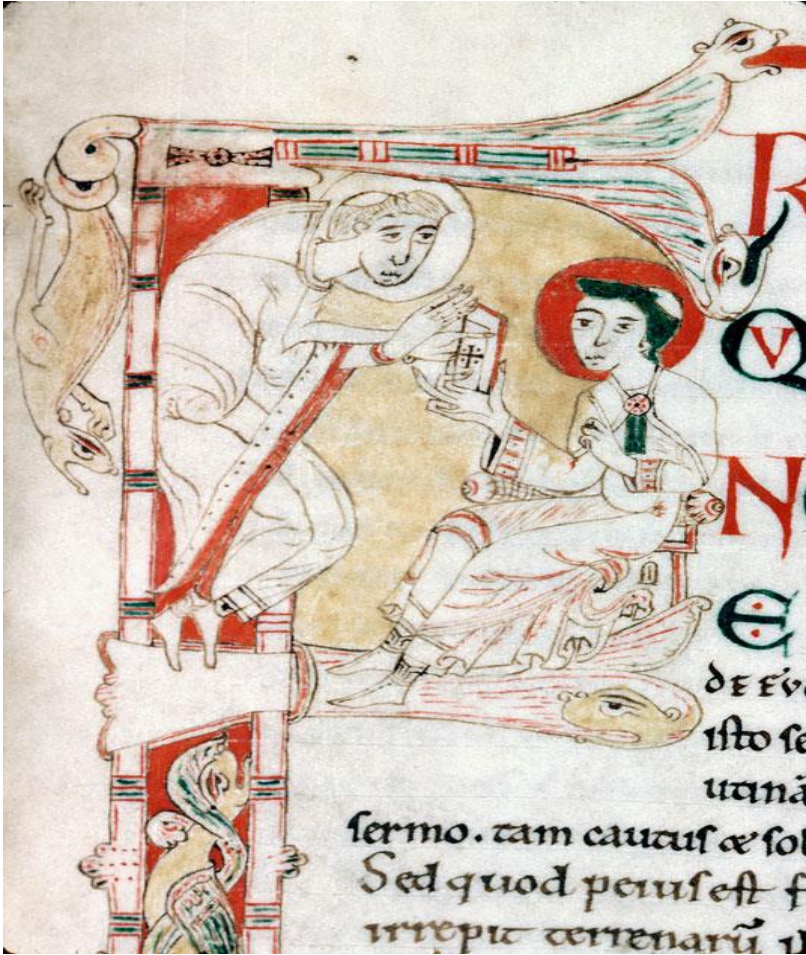 F R
QV
N
E
DE EV
isto se
utinā
sermo. tam cautus & sob
Sed quod peius est f
irrepit terrenarū